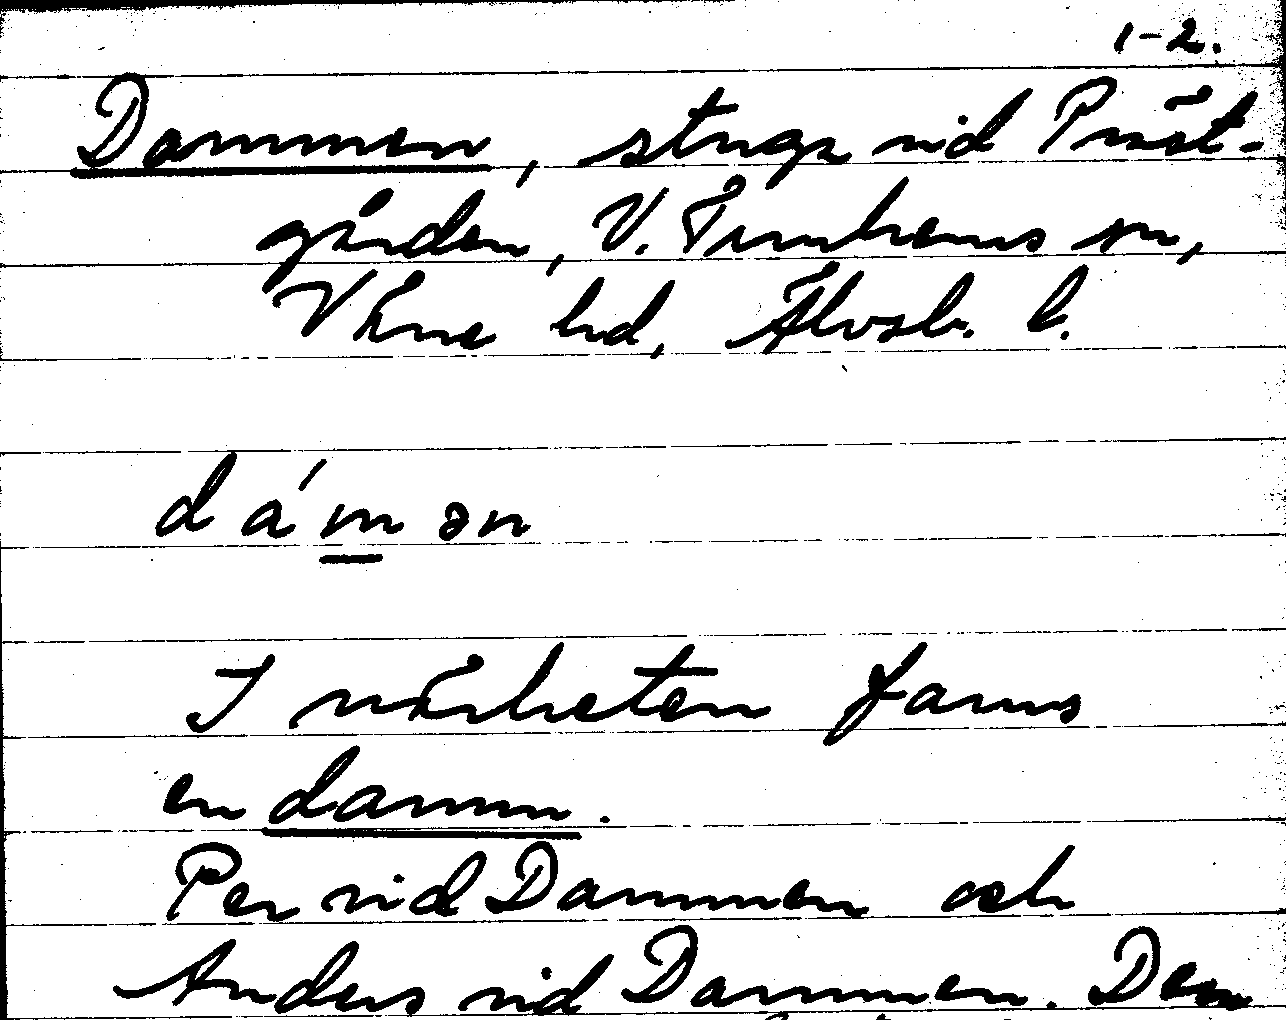 1-2.
Dammen, stuga vid Präst-
gården, V. Tunhems sn,
Väne hd, Älvsb. l.
dám ən
I närheten fanns
en damm.
Per vid Dammen och
Anders vid Dammen. Den